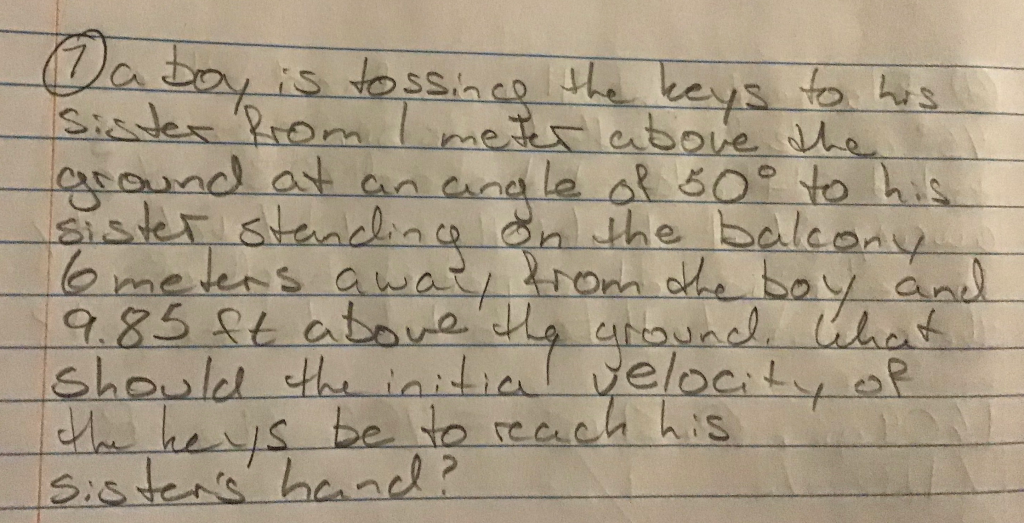 7 a boy is tossing the keys to his
sister from 1 meter above the
ground at an angle of 50° to his
sister standing on the balcony
6 meters away from the boy and
9.85 ft above the ground. What
should the initial velocity of
the keys be to reach his
sister's hand?